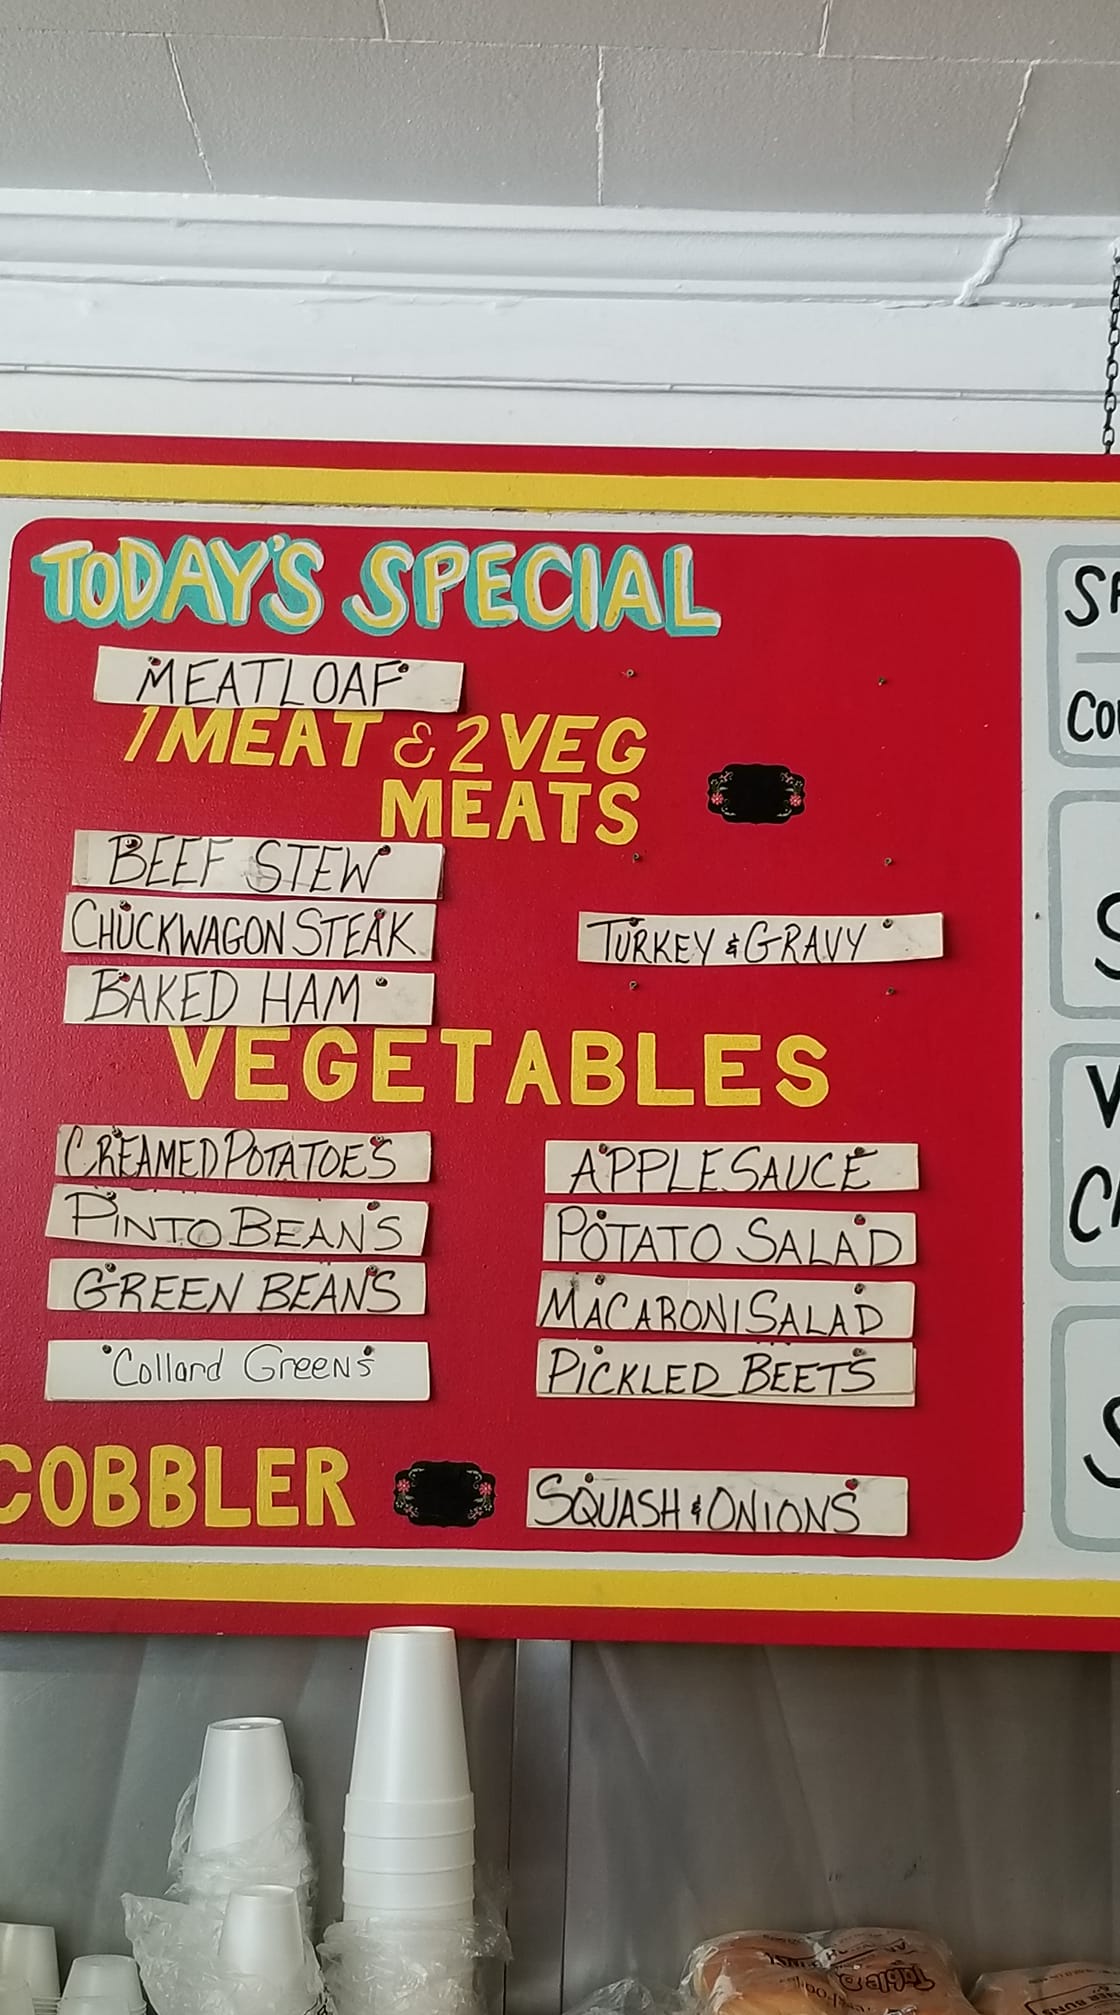 TODAY'S SPECIAL
MEATLOAF
1 MEAT & 2 VEG
MEATS
BEEF STEW
CHUCKWAGON STEAK
BAKED HAM
TURKEY & GRAVY
VEGETABLES
CREAMED POTATOES
PINTO BEANS
GREEN BEANS
Collard Greens
APPLE SAUCE
POTATO SALAD
MACARONI SALAD
PICKLED BEETS
SQUASH & ONIONS
COBBLER